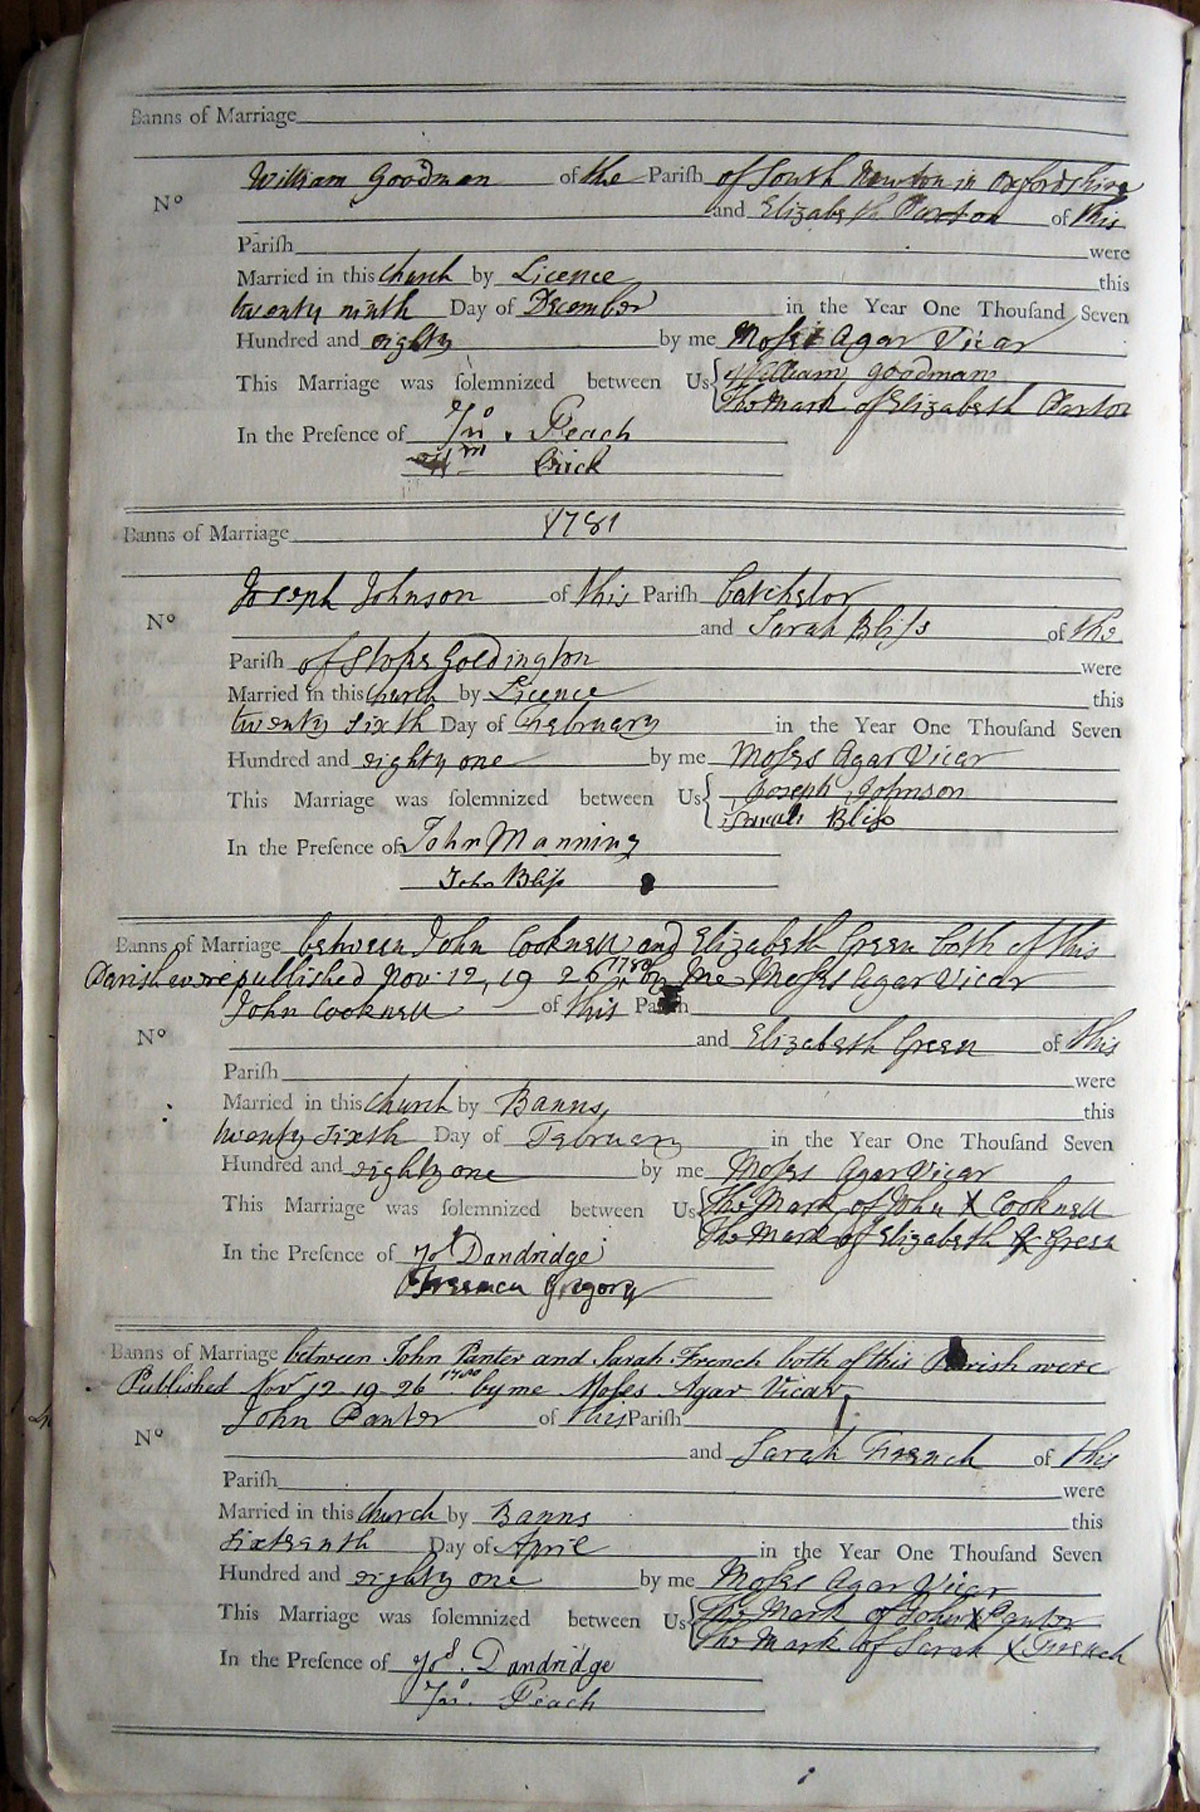 Banns of Marriage
William Goodman of the Pariſh of South Newton in Oxfordshire
No
and Elizabeth Parton of this
Pariſh were
Married in this Church by Licence this
twenty ninth Day of December in the Year One Thouſand Seven
Hundred and eighty by me Moſes Agar Vicar
This Marriage was ſolemnized between Us William Goodman
The Mark of Elizabeth Parton
In the Preſence of Jno. Peach
Wm Brick
Banns of Marriage 1781
Joseph Johnson of this Pariſh batchelor
No
and Sarah Bliſs of the
Pariſh of Stoke Goldington were
Married in this Church by Licence this
twenty sixth Day of February in the Year One Thouſand Seven
Hundred and eighty one by me Moſes Agar Vicar
This Marriage was ſolemnized between Us Joseph Johnson
Sarah Bliſs
In the Preſence of John Manning
John Bliſs
Banns of Marriage between John Cooknell and Elizabeth Green both of this
Parish were published Nov. 12, 19 26 1780 by Me Moſes Agar Vicar
John Cooknell of this Pariſh
No
and Elizabeth Green of this
Pariſh were
Married in this Church by Banns this
twenty sixth Day of February in the Year One Thouſand Seven
Hundred and eighty one by me Moſes Agar Vicar
This Marriage was ſolemnized between Us The Mark of John X Cooknell
The Mark of Elizabeth X Green
In the Preſence of Jos Dandridge
Gregory
Banns of Marriage between John Panter and Sarah French both of this Parish were
Published Nov 12 19 26 1780 by me Moſes Agar Vicar
John Panter of this Pariſh
No
and Sarah French of this
Pariſh were
Married in this Church by Banns this
sixteenth Day of April in the Year One Thouſand Seven
Hundred and eighty one by me Moſes Agar Vicar
This Marriage was ſolemnized between Us The Mark of John X Panter
The Mark of Sarah X French
In the Preſence of Jos. Dandridge
Jno. Peach